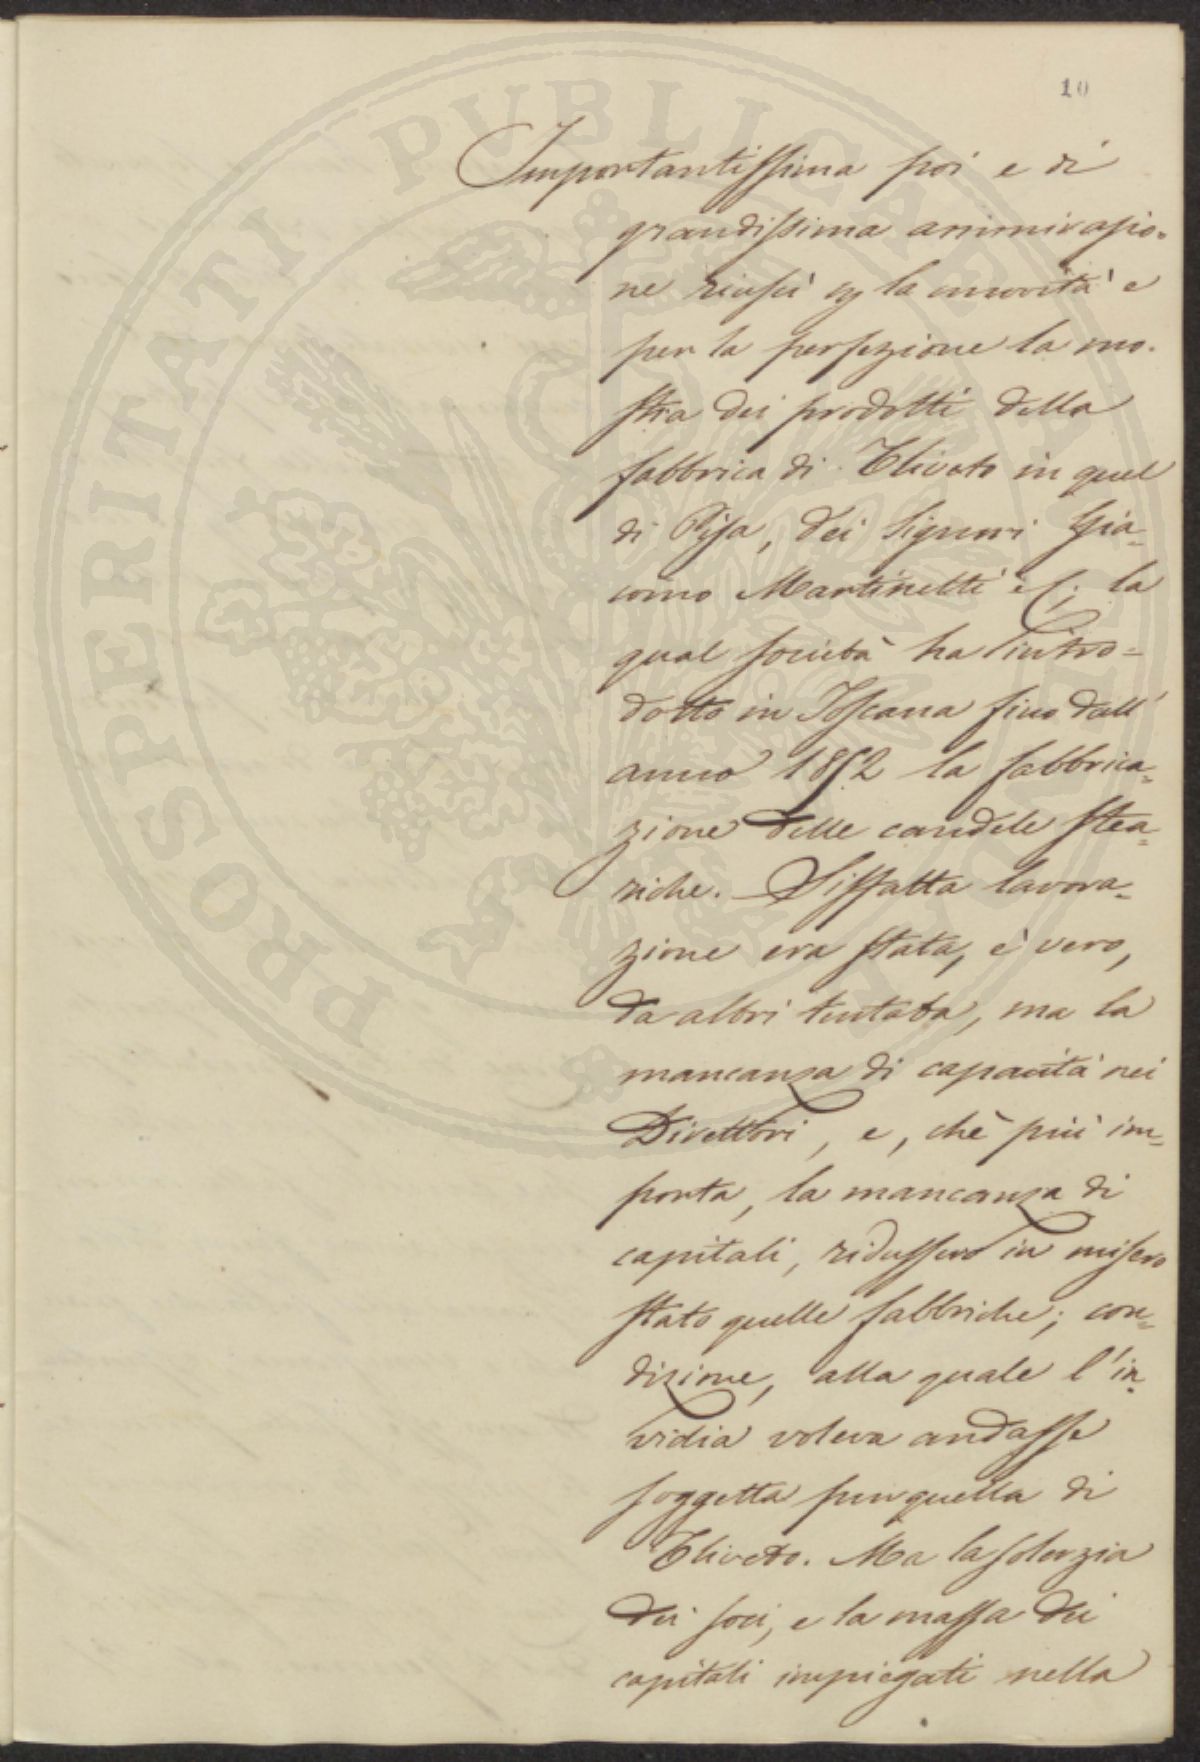 10
Importantissima poi e di
grandissima ammirazio-
ne riescì per la novità e
per la perfezione la mo-
stra dei prodotti della
fabbrica di Uliveto in quel
di Pisa, dei Signori Gia-
como Martinelli e C; la
qual società ha intro=
dotto in Toscana fino dall'
anno 1852 la fabbrica=
zione delle candele stea=
riche. Siffatta lavora=
zione era stata, è vero,
da altri tentata, ma la
mancanza di capacità nei
Direttori, e, chè più im=
porta, la mancanza di
capitali, ridussero in misero
stato quelle fabbriche; con=
dizione, alla quale l'in=
vidia voleva andasse
soggetta pur quella di
Uliveto. Ma la solerzia
dei soci, e la massa dei
capitali impiegati nella
PROSPERITATI PUBLICAE